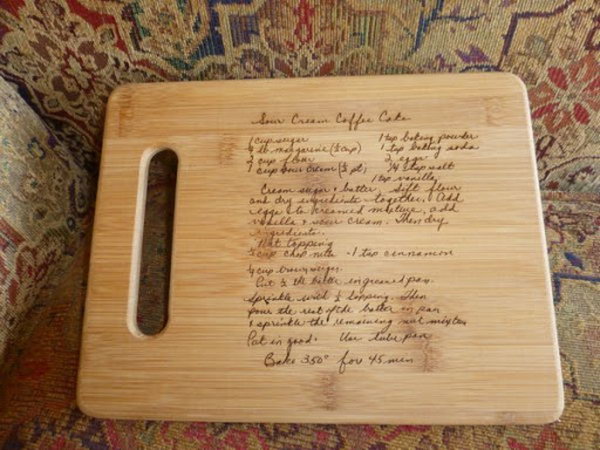 Sour Cream Coffee Cake
1 cup sugar 1 tsp baking powder
lb margarine (½ cup) 1 tsp baking soda
2 cup flour 2 eggs
1 cup sour cream (½ pt) ¼ tsp salt
1 tsp vanilla
Cream sugar & butter, Sift flour
and dry ingredients together. Add
eggs to creamed mixture, add
vanilla & sour cream. Then dry
ingredients.
Nut topping
cup chop nuts - 1 tsp cinnamon
cup brown sugar.
Put ½ the batter in greased pan.
Sprinkle with ½ topping. Then
pour the rest of the batter in pan
& sprinkle the remaining nut mixture
Pat in good. Use tube pan
Bake 350° for 45 min